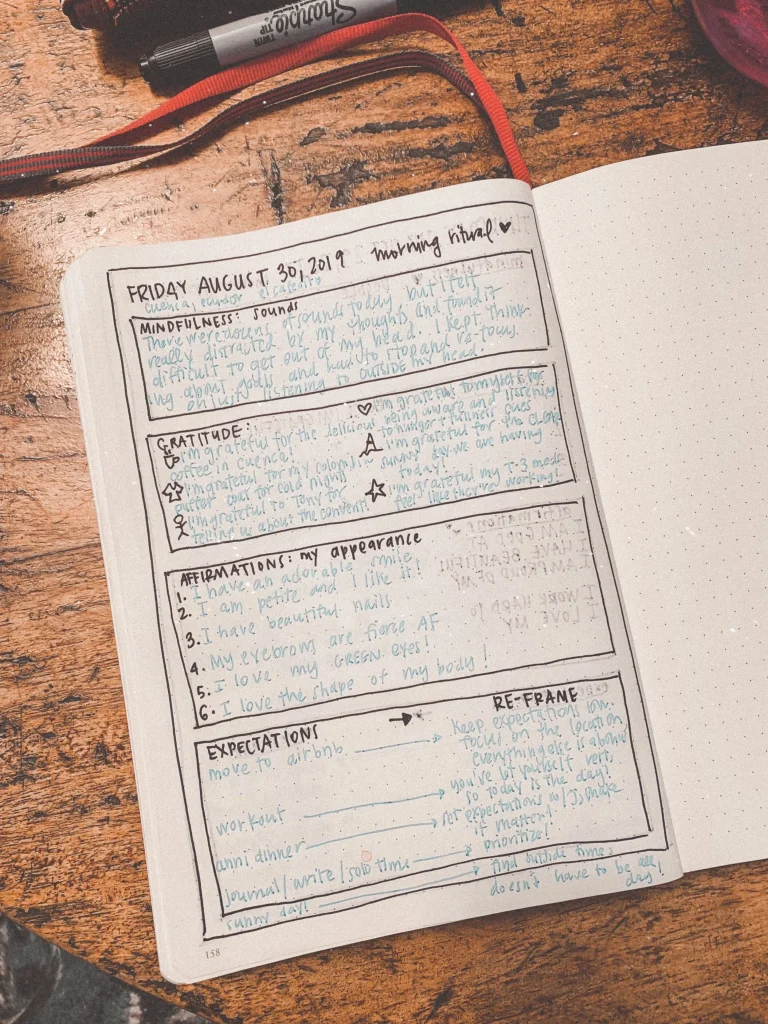 Sharpie
TWIN TIP
FRIDAY AUGUST 30, 2019 morning ritual ♥
cuenca, ecuador el cafecito
MINDFULNESS: sounds
There were dozens of sounds today, but i felt
really distracted by my thoughts and found it
difficult to get out of my head. I kept think-
ing about goals and had to stop and re-focus
on just listening to OUTSIDE my head.
GRATITUDE:
I'm grateful for the delicious
coffee in cuenca!
I'm grateful for my
puffer coat for cold nights
I'm grateful to Tony for
telling us about the convent!
I'm grateful to myself for
being aware and listening
to hunger + fullness cues
I'm grateful for the
sunny day we are having
today!
I'm grateful my T-3 meds
feel like they're working!
AFFIRMATIONS: my appearance
1. I have an adorable smile
2. I am petite and I like it!
3. I have beautiful nails
4. My eyebrows are fierce AF
5. I love my GREEN eyes!
6. I love the shape of my body!
affirmations
I AM GOOD AT
I HAVE BEAUTIFUL
I AM PROUD OF MY
I WORK HARD TO
I LOVE MY
EXPECTATIONS → RE-FRAME
move to airbnb → Keep expectations low.
focus on the location,
everything else is a bonus
workout → you've let yourself rest,
so today is the day!
anni dinner → set expectations w/
it matter!
journal/write/solo time → prioritize!
sunny day! → find outside time,
doesn't have to be all
day!
158